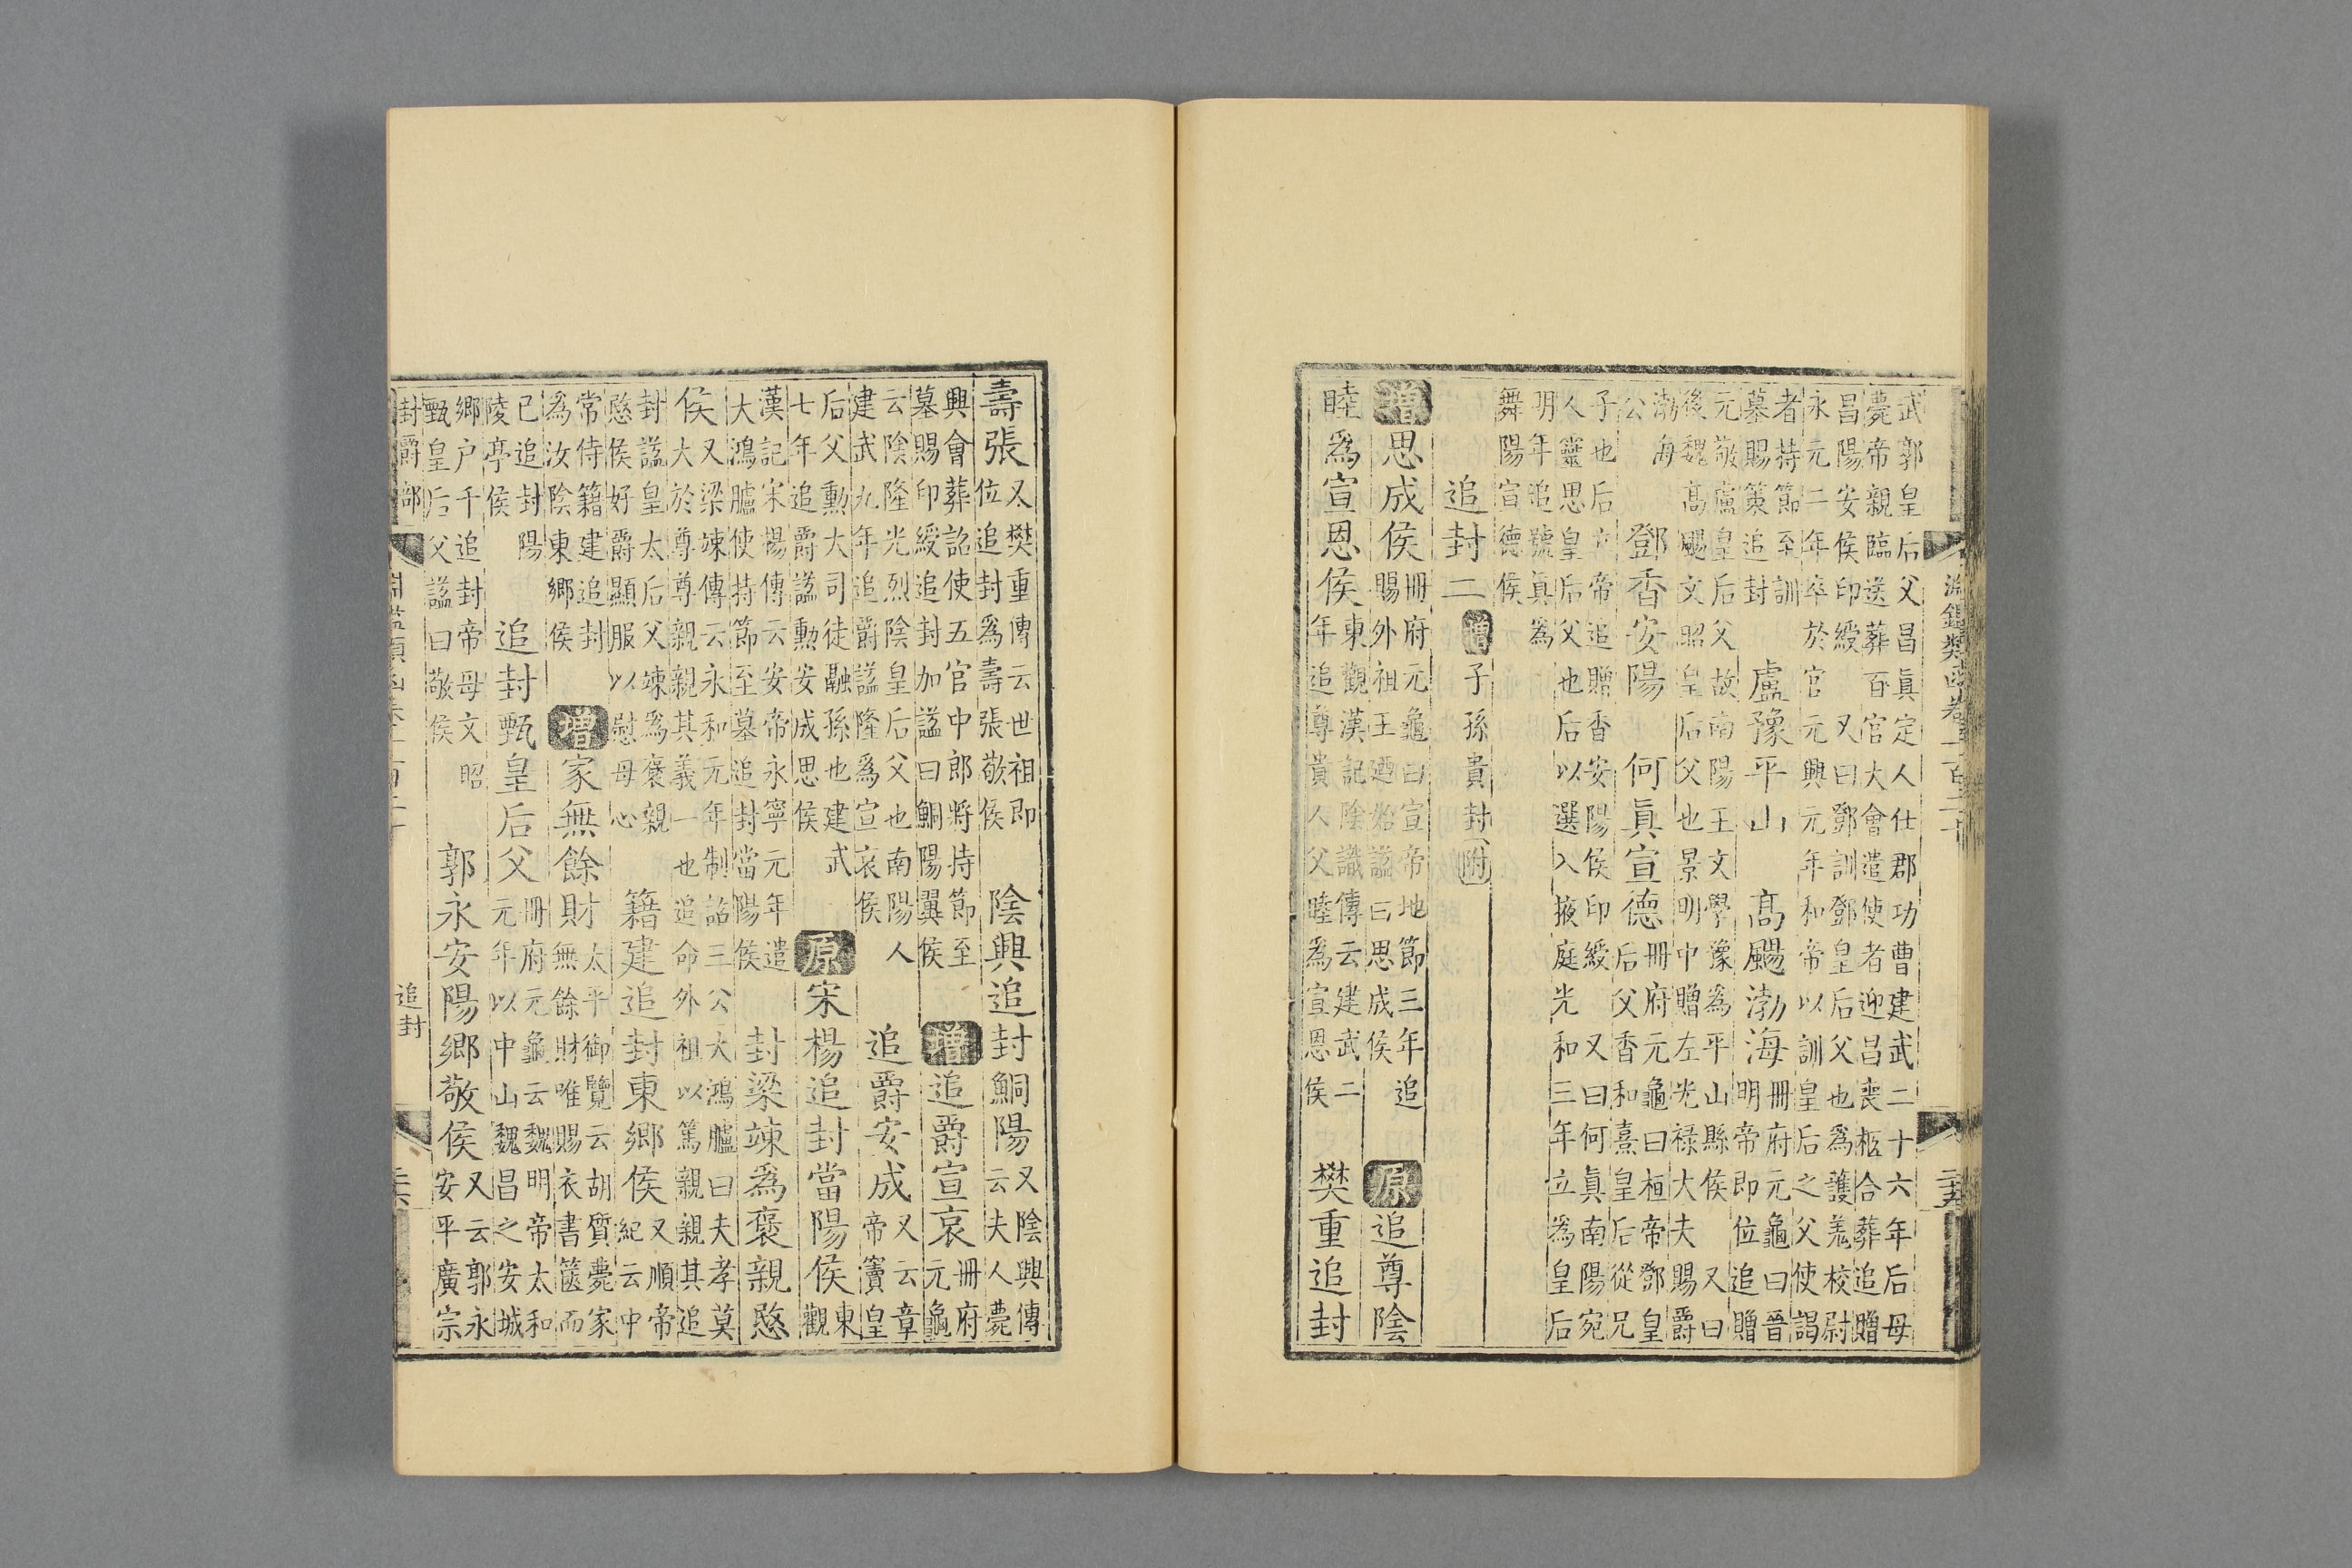 淵鑑類函卷一百二十
武郭皇后父昌真定人仕郡功曹建武二十六年后母
薨帝親臨送葬百官大會遣使者迎昌喪柩合葬追贈
昌陽安侯印綬 又曰鄧訓鄧皇后父也為護羌校尉
永元二年卒於官元興元年和帝以訓皇后之父使謁
者持節至訓
墓賜策追封
盧豫平山
高颺渤海
冊府元龜曰晉
明帝即位追贈
元敬盧皇后父故南陽王文學豫為平山縣侯 又曰
後魏高颺文昭皇后父也景明中贈左光祿大夫賜爵
渤海
公
鄧香安陽
何眞宣德
冊府元龜曰桓帝鄧皇
后父香和熹皇后從兄
子也后立帝追贈香安陽侯印綬 又曰何眞南陽宛
人靈思皇后父也后以選入掖庭光和三年立為皇后
明年追號眞為
舞陽宣德侯
追封二 增 子孫貴封附
增 思成侯
冊府元龜曰宣帝地節三年追
賜外祖王迺始諡曰思成侯
原 追尊陰
睦為宣恩侯
東觀漢記陰識傳云建武二
年追尊貴人父睦為宣恩侯
樊重追封
壽張
又樊重傳云世祖即
位追封為壽張敬侯
陰興追封鮦陽
又陰興傳
云夫人薨
興會葬詔使五官中郎將持節至
墓賜印綬追封加諡曰鮦陽翼侯
增 追爵宣哀
冊府
元龜
云陰隆光烈陰皇后父也南陽人
建武九年追爵諡隆為宣哀侯
追爵安成
又云章
帝竇皇
后父勳大司徒融孫也建武
七年追爵諡勳安成思侯
原 宋楊追封當陽侯
東
觀
漢記宋楊傳云安帝永寧元年遣
大鴻臚使持節至墓追封當陽侯
封梁竦為褒親愍
侯
又梁竦傳云永和元年制詔三公大鴻臚曰夫孝莫
大於尊尊親親其義一也追命外祖以篤親親其追
封諡皇太后父竦為褒親
愍侯好爵顯服以慰母心
籍建追封東鄉侯
又順帝
紀云中
常侍籍建追封
為汝陰東鄉侯
增 家無餘財
太平御覽云胡質薨家
無餘財唯賜衣書篋而
已追封陽
陵亭侯
追封甄皇后父
冊府元龜云魏明帝太和
元年以中山魏昌之安城
鄉户千追封帝母文昭
甄皇后父諡曰敬侯
郭永安陽鄉敬侯
又云郭永
安平廣宗
封爵部 淵鑑類函卷一百二十 追封